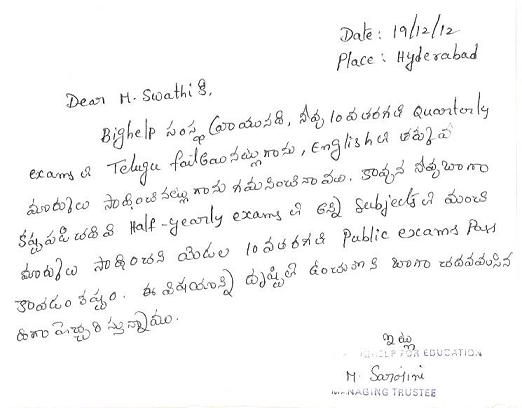 Date: 19/12/12
Place: Hyderabad
Dear M. Swathi కి,
Bighelp సంస్థ వ్రాయునది, నీవు 10 వ తరగతి Quarterly
exams లో Telugu fail అయినట్లుగాను, English లో తక్కువ
మార్కులు సాధించినట్లుగాను గమనించినాము. కావున నీవు బాగా
కష్టపడి చదివి Half-yearly exams లో అన్ని Subjects లో మంచి
మార్కులు సాధించని యెడల 10 వ తరగతి Public exams Pass
కావడం కష్టం. ఈ విషయాన్ని దృష్టిలో ఉంచుకొని బాగా చదవవలసిన
దిగా హెచ్చరిస్తున్నాము.
ఇట్లు
BIGHELP FOR EDUCATION
M. Sarojini
MANAGING TRUSTEE